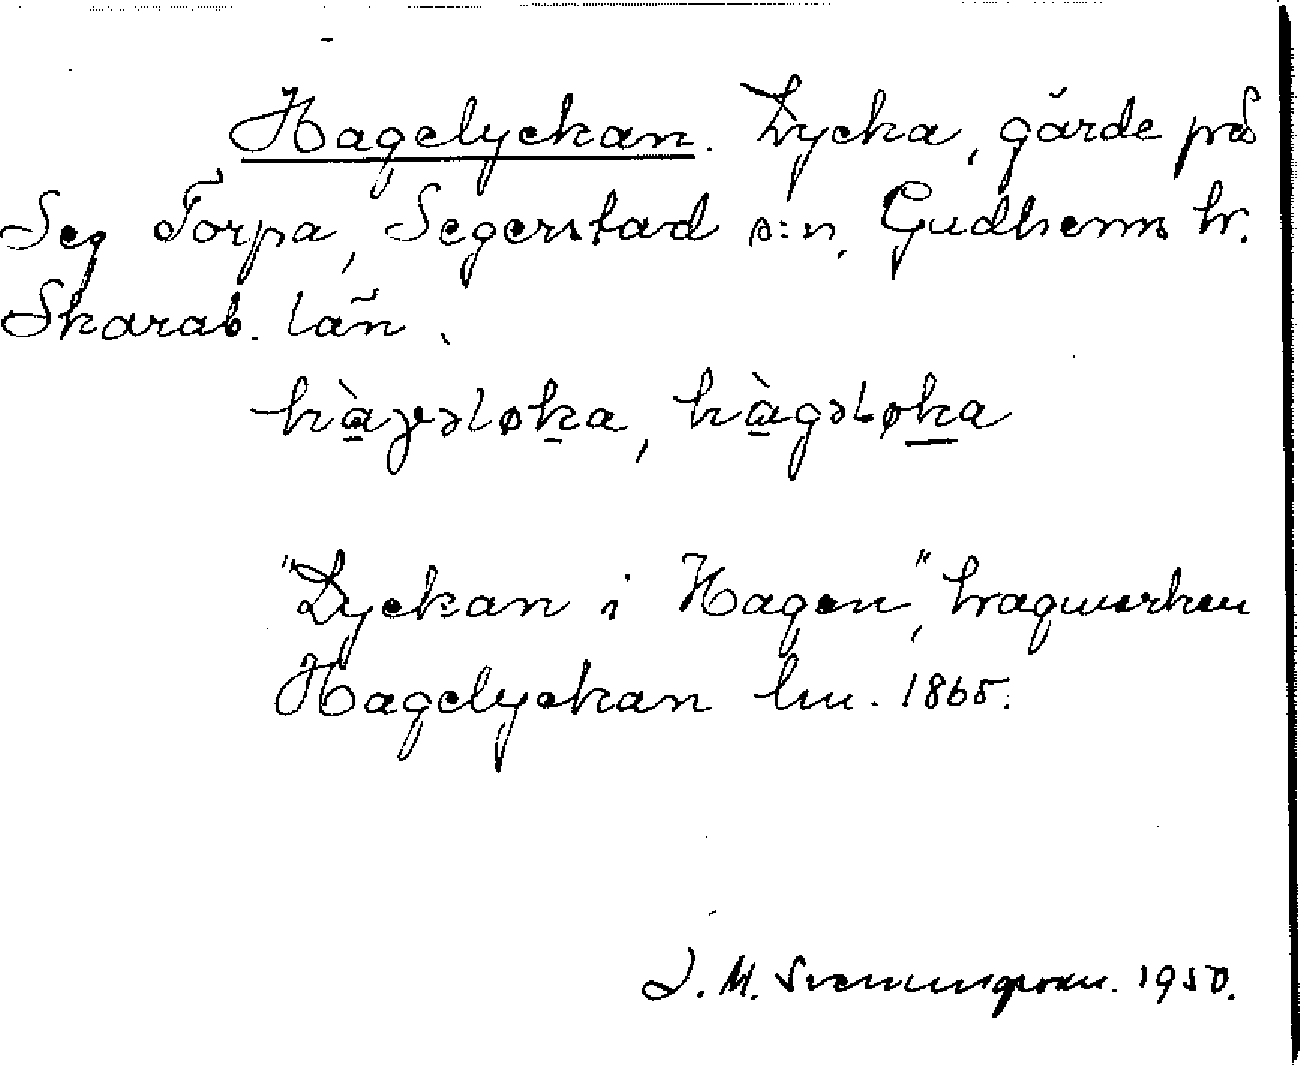 Hagelyckan. Lycka, gärde på
Seg Torpa, Segerstad s:n. Gudhems hr.
Skarab. län.
hàgələka, hàgələka
"Lyckan i Hagen",
Hagelyckan lm. 1865.
J. M. Svenningsson. 1950.